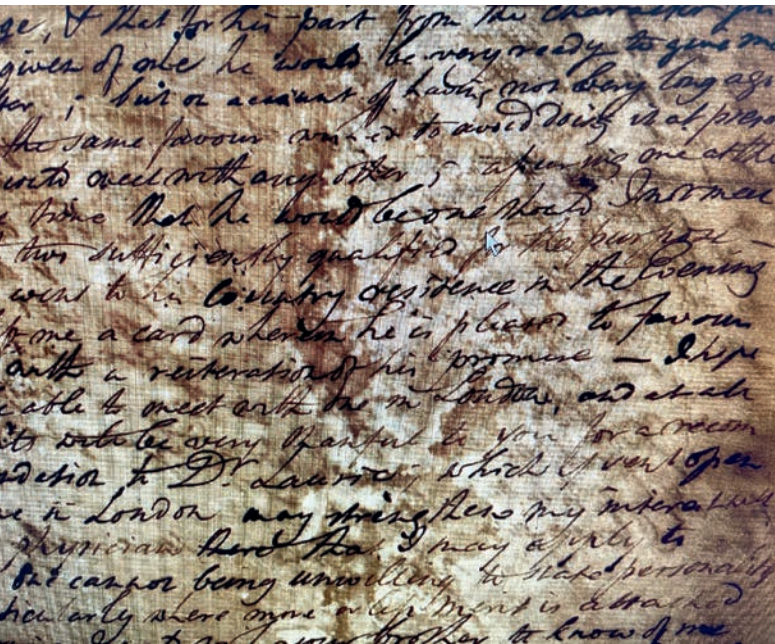 ge, & that for his part from the character
given of me he would be very ready to give me
but on account of having not very long ago
the same favour to avoid doing it at
meet with any other ;
time that he would be one should
sufficiently qualified for the purpose
went to his Country residence in the Evening
me a card wherein he is pleased to favour
with a reiteration of his promise — I hope
able to meet with one in London, and at all
will be very thankful to you for a recom
dation to Dr. which if sent open
me in London may strengthen my interest
physician there that I may apply to
cannot being unwilling to state personally
ticularly where more or less merit is attached
your brother to know of me